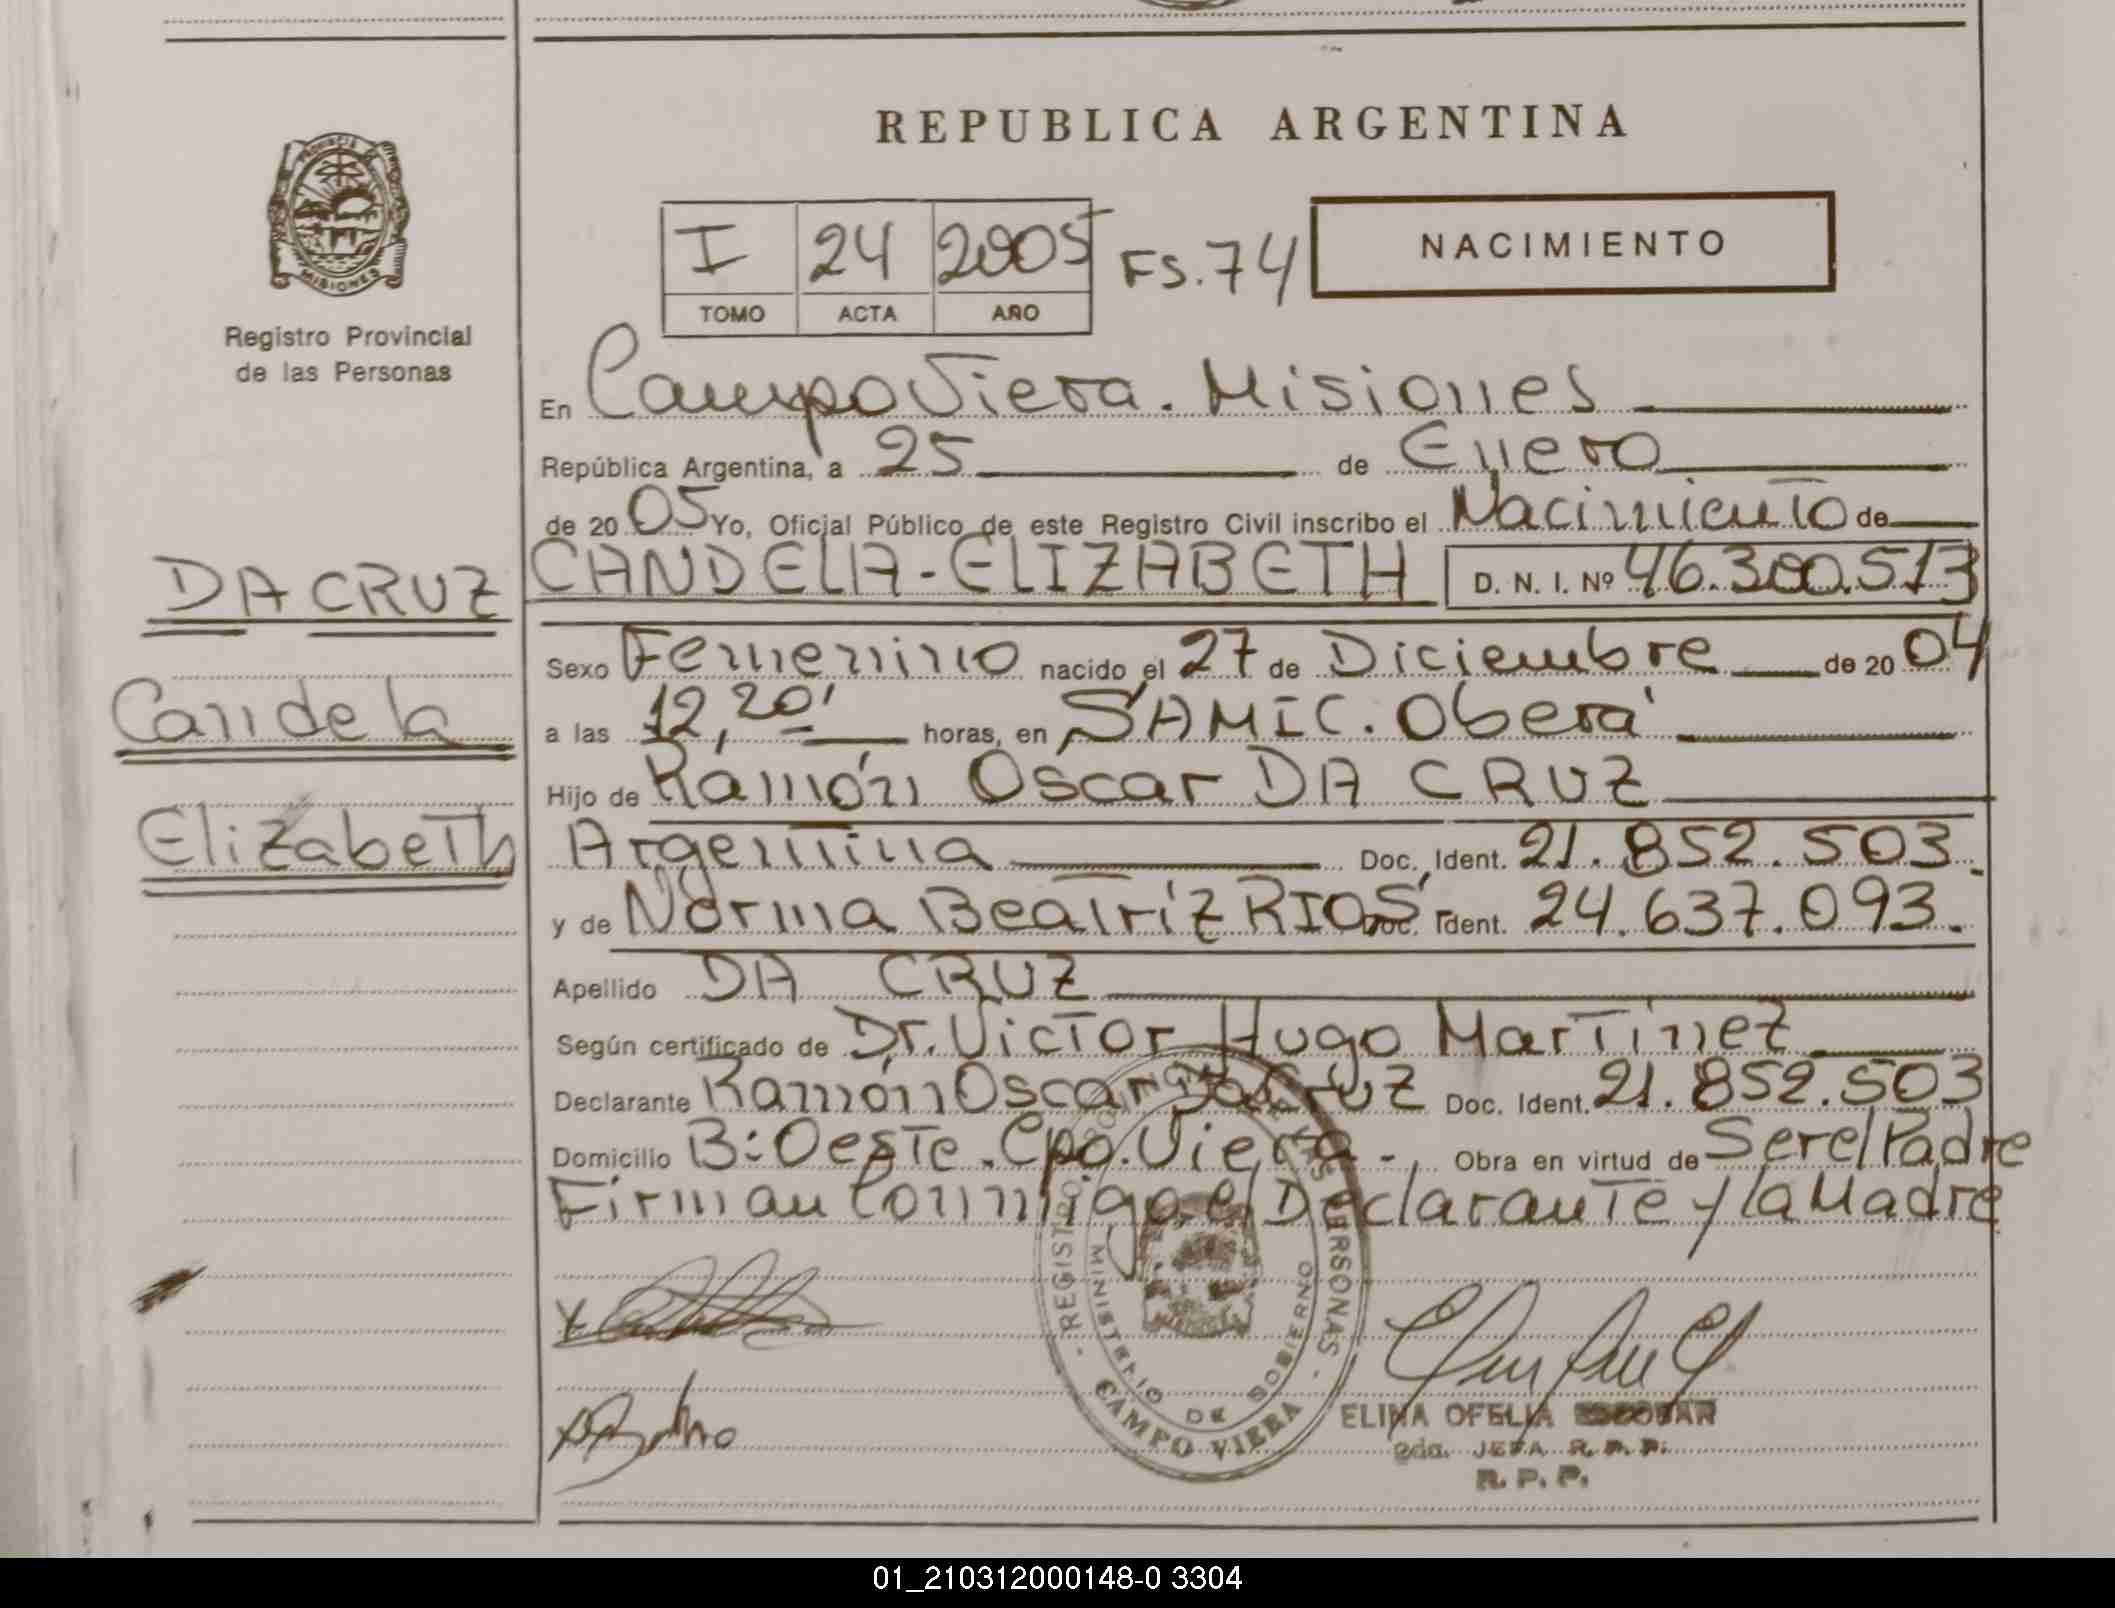 REPUBLICA ARGENTINA
PROVINCIA DE MISIONES
Registro Provincial
de las Personas
I 24 2005 Fs. 74
TOMO ACTA AÑO
NACIMIENTO
En Campo Viera. Misiones
República Argentina, a 25 de Enero
de 2005 Yo, Oficial Público de este Registro Civil inscribo el Nacimiento de
DA CRUZ
Candela
Elizabeth
CANDELA-ELIZABETH D. N. I. Nº 46.300.513
Sexo Femenino nacido el 27 de Diciembre de 2004
a las 12,20' horas, en SAMIC. Oberá
Hijo de Ramón Oscar DA CRUZ
Argentina Doc. Ident. 21.852.503.
y de Norma Beatriz RIOS Doc. Ident. 24.637.093.
Apellido DA CRUZ
Según certificado de Dr. Victor Hugo Martinez
Declarante Ramón Oscar Da Cruz Doc. Ident. 21.852.503
Domicilio B: Oeste. Cpo. Viera-. Obra en virtud de Ser el Padre
Firman Conmigo el Declarante y la Madre
- REGISTRO PROVINCIAL DE LAS PERSONAS -
MINISTERIO DE GOBIERNO
CAMPO VIERA
ELINA OFELIA ESCOBAR
2da. JEFA R. P. P.
R. P. P.
01_210312000148-0 3304